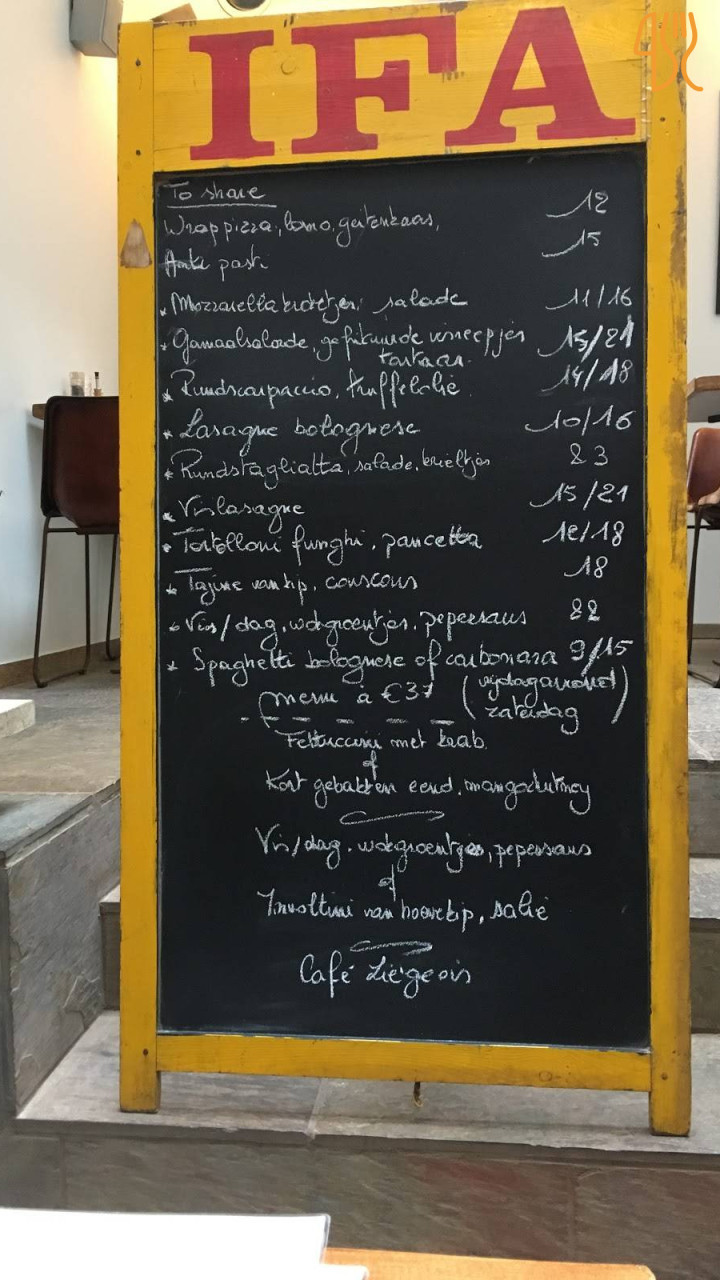 IFA
To share
Wrap pizza, lomo, geitenkaas, 12
Anti pasti 15
* Mozzarella salade 11/16
* Garnaalsalade, gefrituurde
tartaar. 15/21
* Rundscarpaccio, truffelolie 14/18
* Lasagne bolognese 10/16
* Rundstagliatta, salade, krieltjes 23
* Vislasagne 15/21
* Tortelloni funghi, pancetta 12/18
* Tajine van kip, couscous 18
* Vis/dag, wokgroentjes, pepersaus 22
* Spaghetti bolognese of carbonara 9/15
menu à €37 (vrijdagavond
zaterdag)
Fettuccini met krab
of
Kort gebakken eend, mangochutney
Vis/dag, wokgroentjes, pepersaus
of
Involtini van hoevekip, salie
Café Liégeois